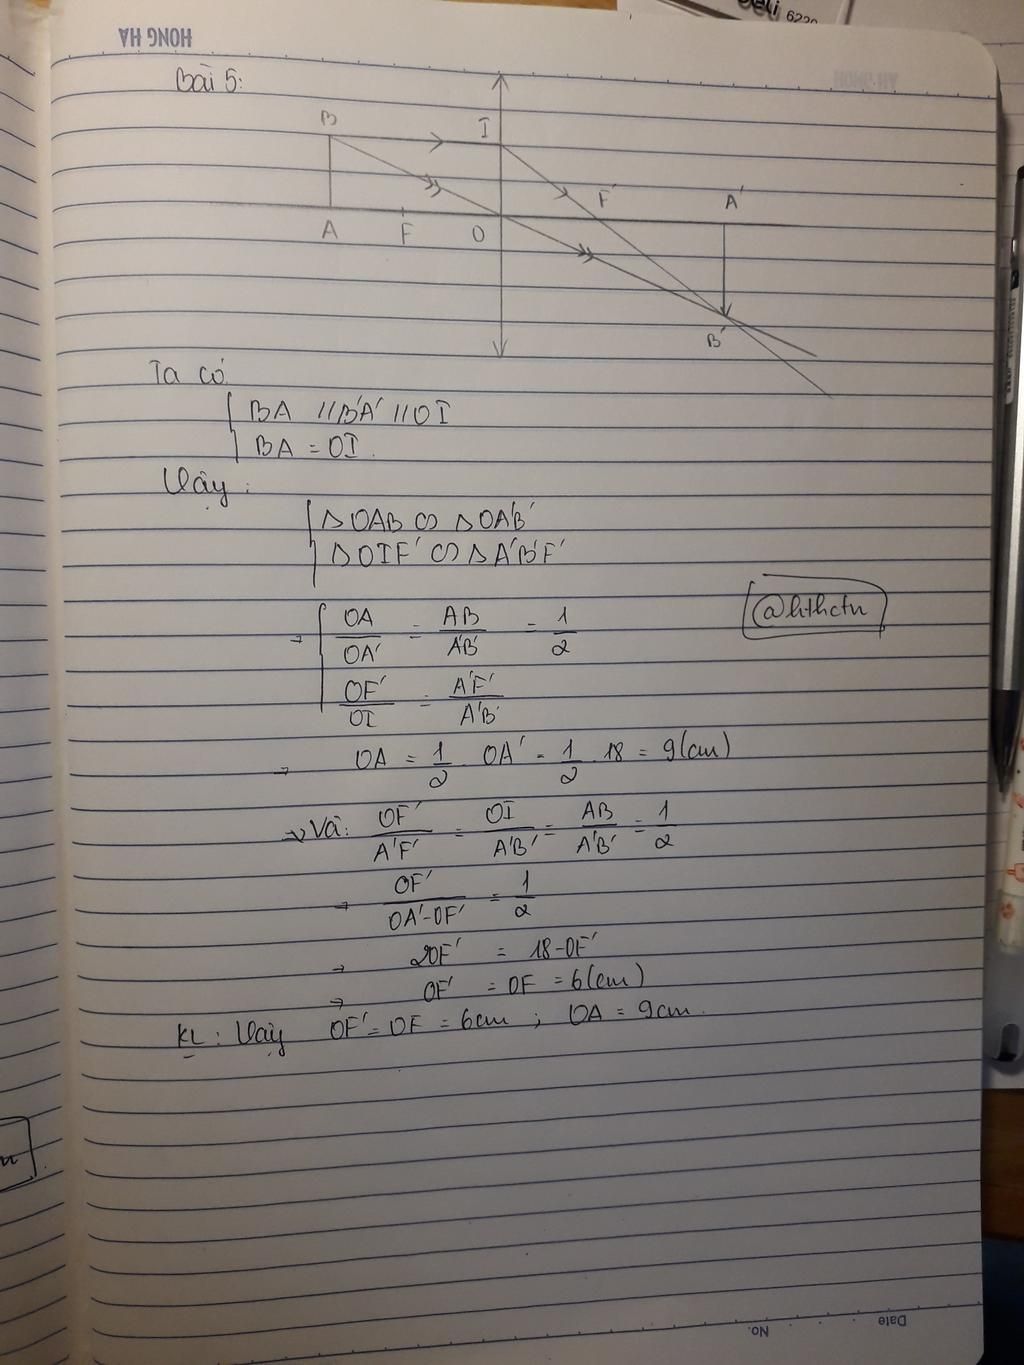 HONG HA
Deli 6220
Bài 5:
B I F' A'
A F O
B'
Ta có
BA // B'A' // OI
BA = OI.
Vậy:
Δ OAB ∽ Δ OA'B'
Δ OIF' ∽ Δ A'B'F'
→ OA/OA' = AB/A'B' = 1/2
@hthctn
OF'/OI = A'F'/A'B'
→ OA = 1/2 . OA' = 1/2 . 18 = 9(cm)
→ Và: OF'/A'F' = OI/A'B' = AB/A'B' = 1/2
→ OF'/OA'-OF' = 1/2
→ 2OF' = 18-OF'
→ OF' = OF = 6(cm)
KL: Vậy OF' = OF = 6cm ; OA = 9cm.
No.
Date